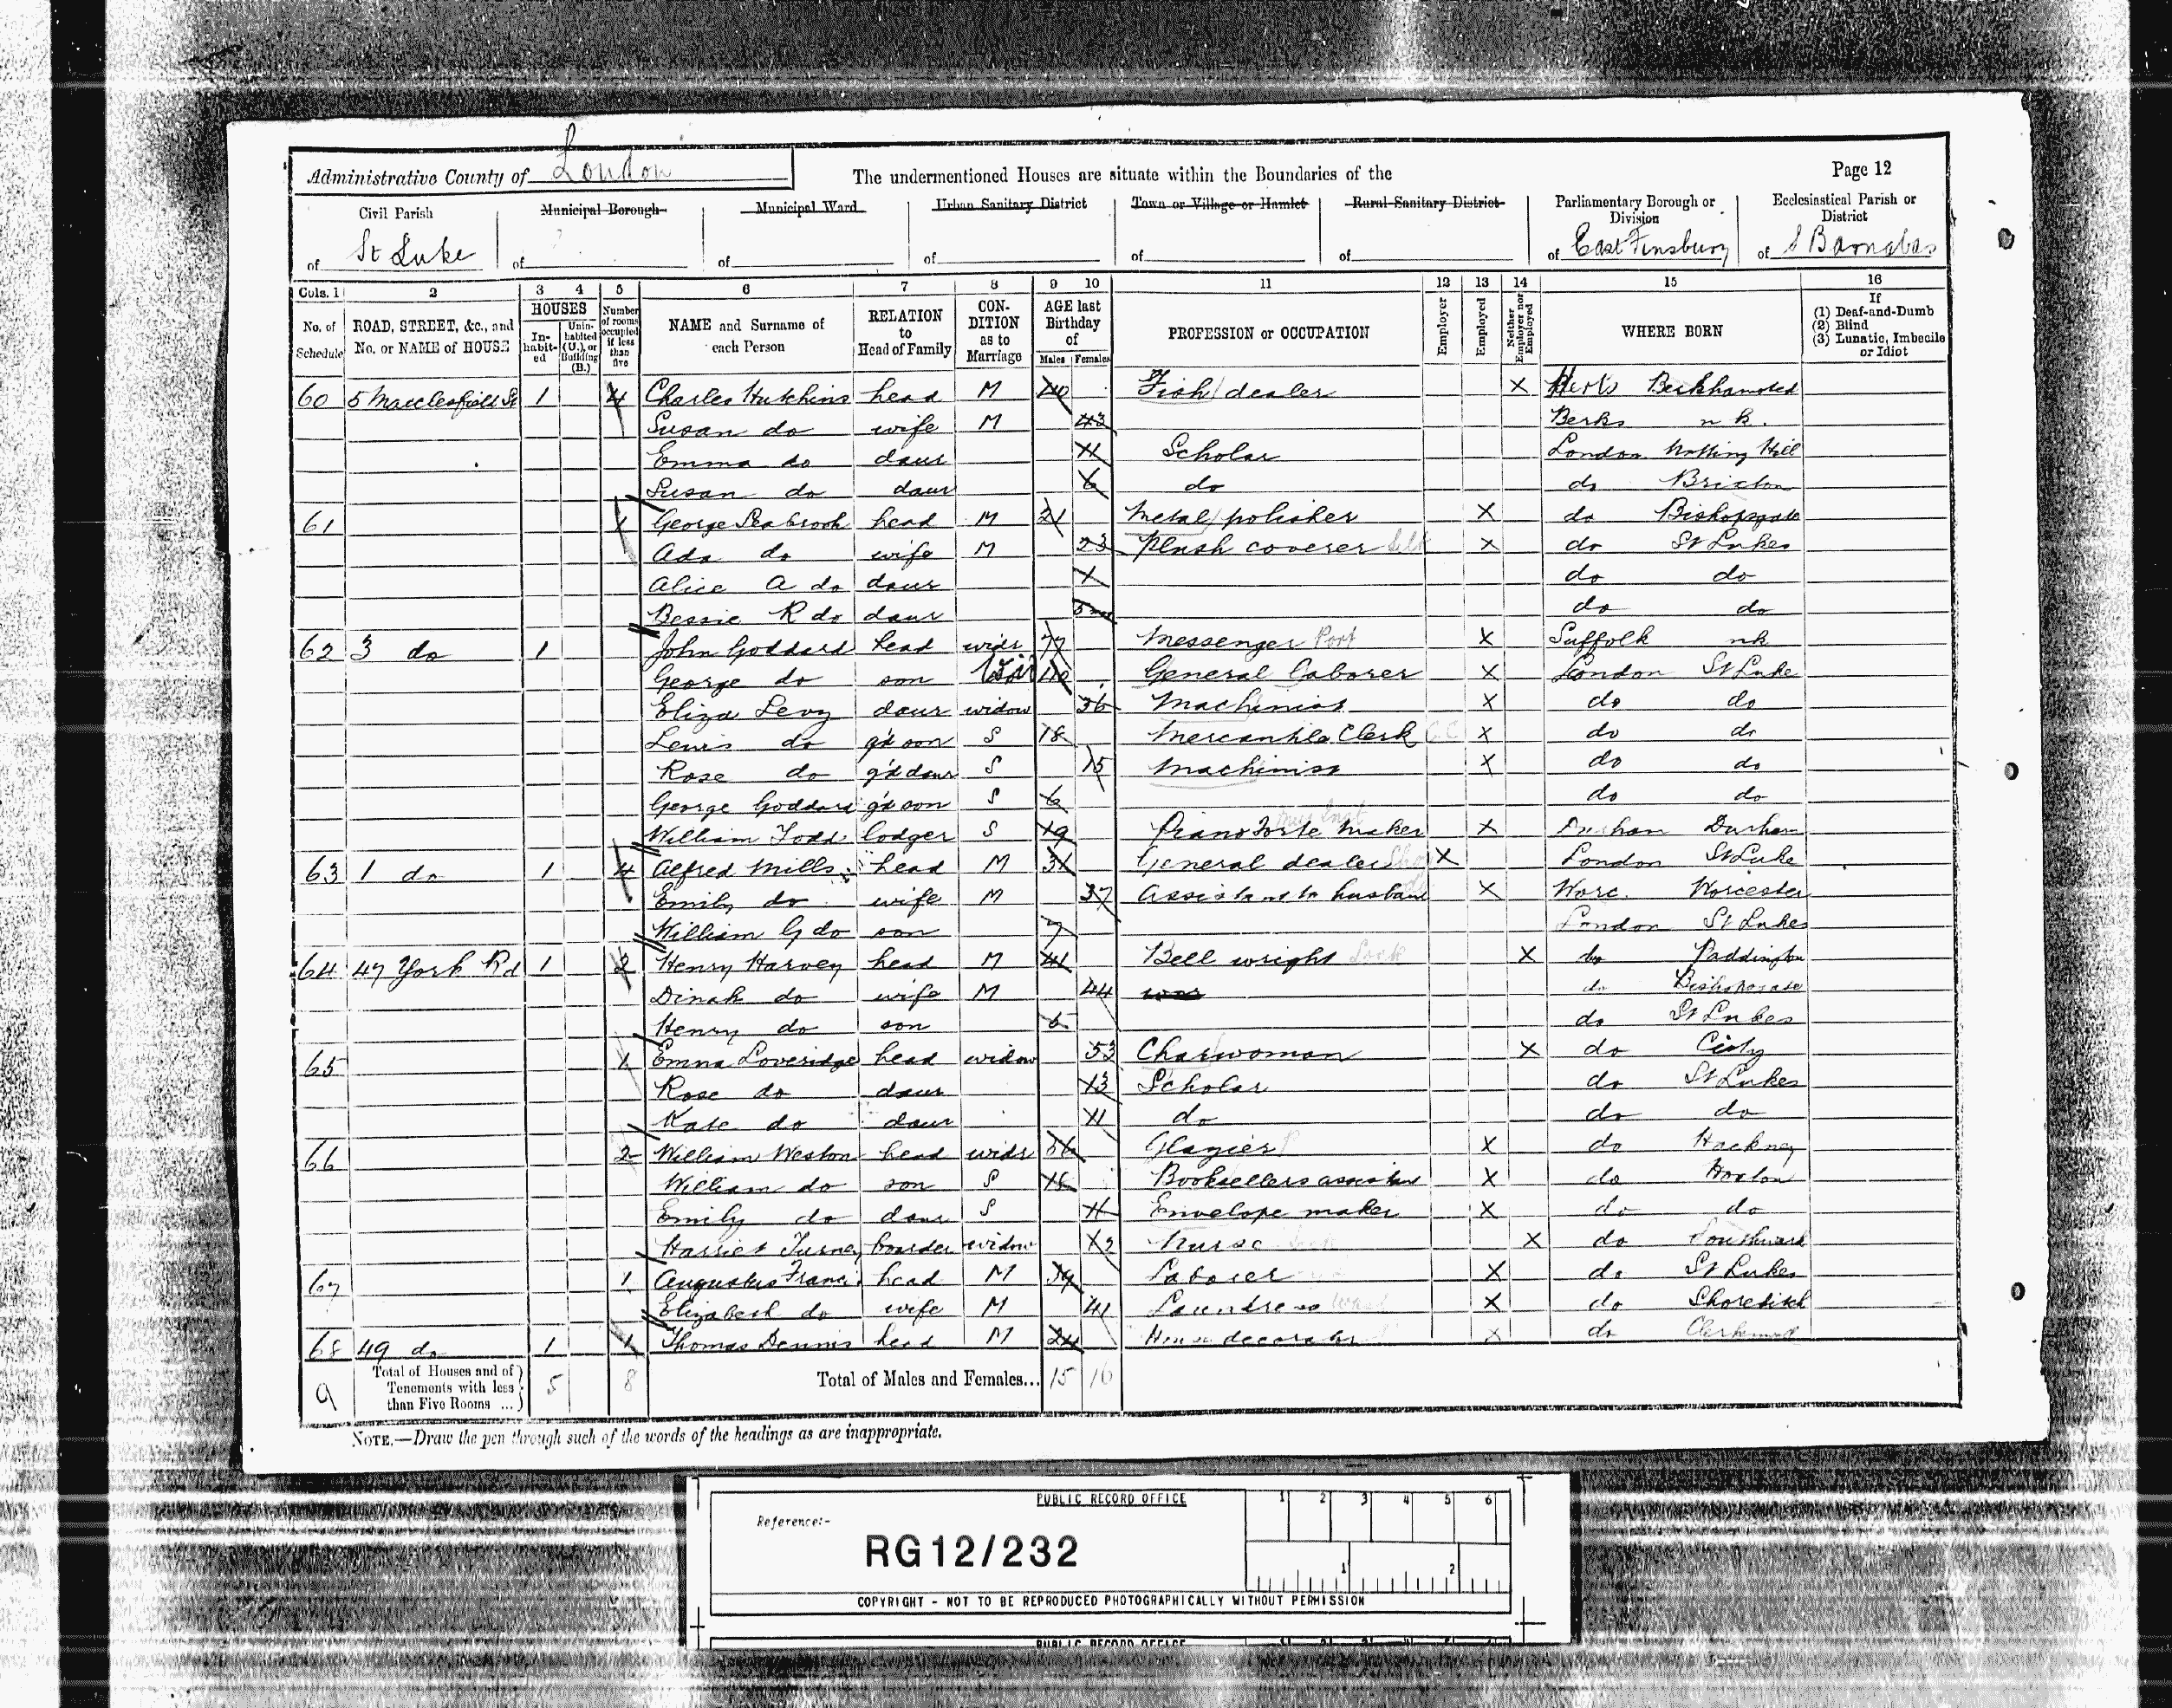 Administrative County of London
The undermentioned Houses are situate within the Boundaries of the
Page 12
Civil Parish of St Luke
Municipal Borough of
Municipal Ward of
Urban Sanitary District of
Town or Village or Hamlet of
Rural Sanitary District of
Parliamentary Borough or Division of East Finsbury
Ecclesiastical Parish or District of S Barnabas
Cols. 1 2 3 4 5 6 7 8 9 10 11 12 13 14 15 16
No. of Schedule
ROAD, STREET, &c., and No. or NAME of HOUSE
HOUSES
Inhabited
Uninhabited (U.), or Building (B.)
Number of rooms occupied if less than five
NAME and Surname of each Person
RELATION to Head of Family
CONDITION as to Marriage
AGE last Birthday of
Males Females
PROFESSION or OCCUPATION
Employer
Employed
Neither Employer nor Employed
WHERE BORN
If
(1) Deaf-and-Dumb
(2) Blind
(3) Lunatic, Imbecile or Idiot
60 5 Macclesfield St 1 4 Charles Hutchins head M 40 Fish dealer X Herts Berkhamsted
Susan do wife M 43 Berks n k.
Emma do daur 11 Scholar London Notting Hill
Susan do daur 6 do do Brixton
61 1 George Seabrook head M 21 Metal polisher X do Bishopsgate
Ada do wife M 23 Plush coverer X do St Lukes
Alice A do daur 1 do do
Bessie R do daur 5 mos do do
62 3 do 1 John Goddard head widr 77 Messenger Port X Suffolk nk
George do son 40 General Laborer X London St Luke
Eliza Levy daur widow 36 Machinist X do do
Lewis do g'd son S 18 Mercantile Clerk X do do
Rose do g'd daur S 15 Machinist X do do
George Goddard g'd son S 6 do do
William Todd lodger S 19 Piano Forte Maker X Durham Durham
63 1 do 1 4 Alfred Mills head M 31 General dealer X London St Luke
Emily do wife M 37 assistant to husband X Worc. Worcester
William G do son 7 London St Lukes
64 47 York Rd 1 2 Henry Harvey head M 41 Bell wright Lock X do Paddington
Dinah do wife M 44 do Bishopsgate
Henry do son 6 do St Lukes
65 1 Emma Loveridge head widow 53 Charwoman X do City
Rose do daur 13 Scholar do St Lukes
Kate do daur 11 do do do
66 2 William Weston head widr 56 Glazier X do Hackney
William do son S 18 Booksellers assistant X do Hoxton
Emily do daur S Envelope maker X do do
Harriet Turney boarder widow Nurse X do Southwark
67 1 Augustus Francis head M 39 Laborer X do St Lukes
Elizabeth do wife M 41 Laundress Wash X do Shoreditch
68 49 do 1 1 Thomas Dennis head M 24 House decorator X do Clerkenwell
9 Total of Houses and of Tenements with less than Five Rooms ... 5 8 Total of Males and Females... 15 16
NOTE.—Draw the pen through such of the words of the headings as are inappropriate.
PUBLIC RECORD OFFICE
1 2 3 4 5 6
Reference:-
RG12/232
1 2
COPYRIGHT - NOT TO BE REPRODUCED PHOTOGRAPHICALLY WITHOUT PERMISSION
PUBLIC RECORD OFFICE